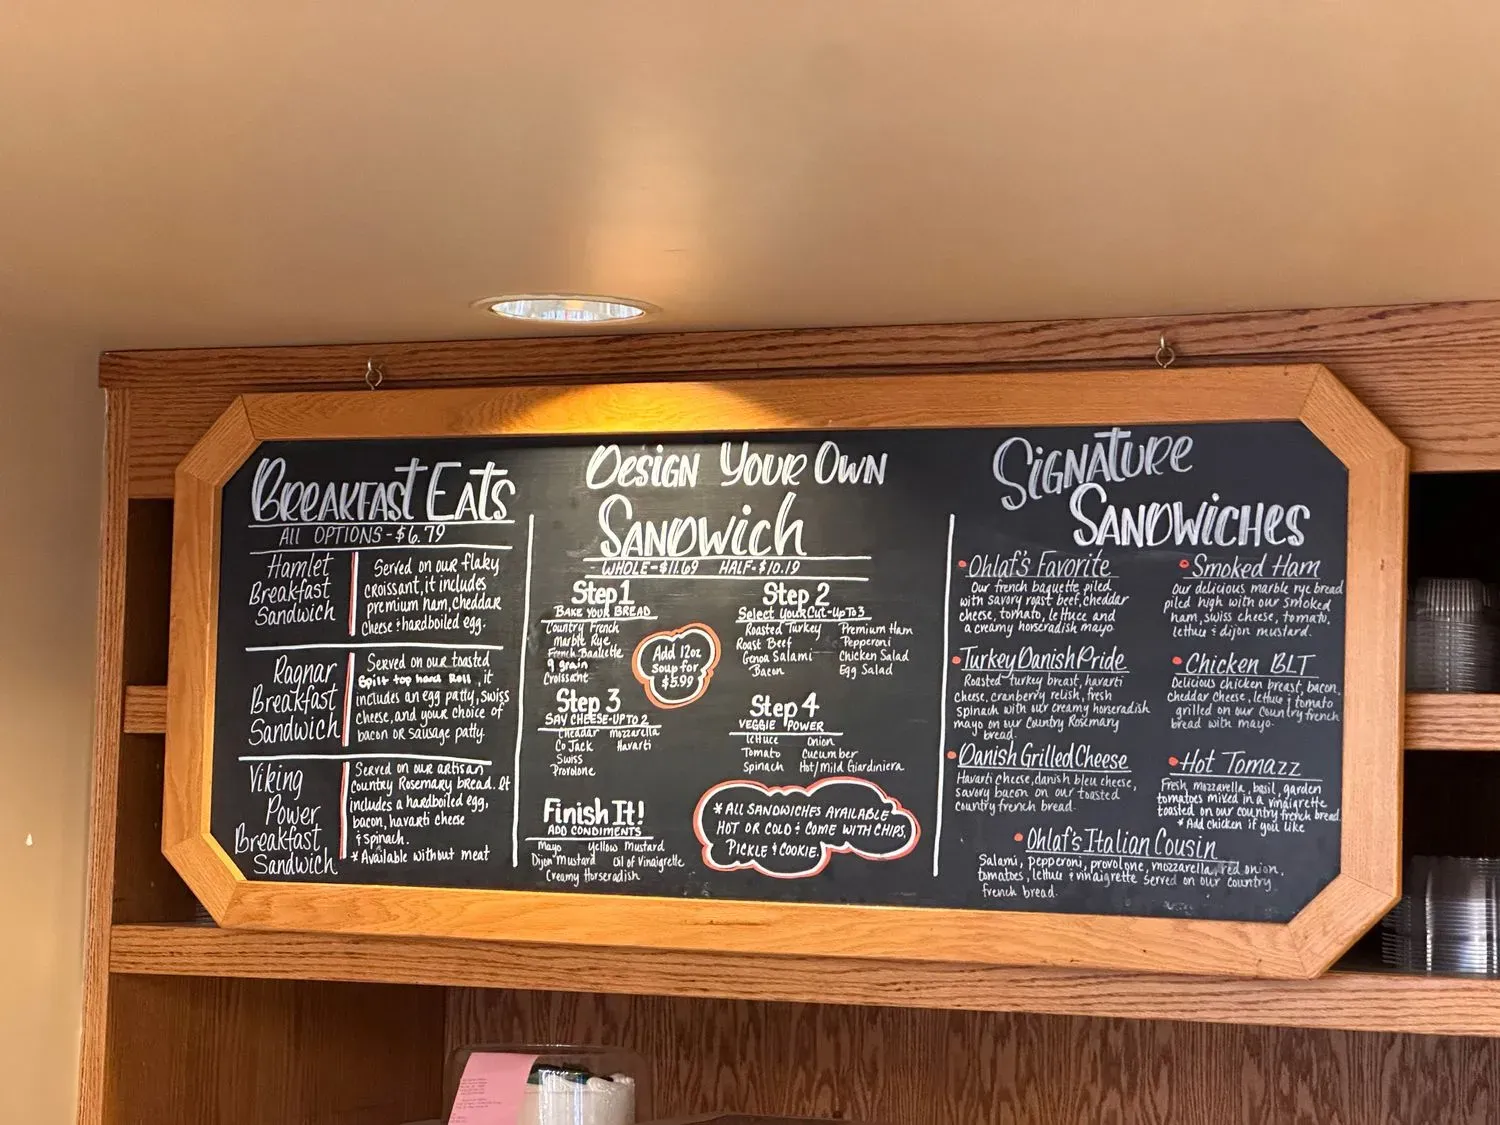 BREAKFAST EATS
All OPTIONS - $6.79
Hamlet
Breakfast
Sandwich
Served on our flaky
croissant, it includes
premium ham, cheddar
cheese & hardboiled egg.
Ragnar
Breakfast
Sandwich
Served on our toasted
Split top hard Roll, it
includes an egg patty, swiss
cheese, and your choice of
bacon or sausage patty.
Viking
Power
Breakfast
Sandwich
Served on our artisan
Country Rosemary bread. It
includes a hardboiled egg,
bacon, havarti cheese
& spinach.
* Available without meat
DESIGN YOUR OWN
SANDWICH
WHOLE - $11.69 HALF - $10.19
Step 1
BAKE YOUR BREAD
Country French
Marble Rye
French Baguette
9 grain
Croissant
Step 2
Select your Cut - Up To 3
Roasted Turkey
Roast Beef
Genoa Salami
Bacon
Premium Ham
Pepperoni
Chicken Salad
Egg Salad
Add 12oz
soup for
$5.99
Step 3
SAY CHEESE - UP TO 2
Cheadar mozzarella
Co Jack Havarti
Swiss
Provolone
Step 4
VEGGIE POWER
Lettuce onion
Tomato Cucumber
Spinach Hot/Mild Giardiniera
Finish It!
ADD CONDIMENTS
Mayo Yellow Mustard
Dijon Mustard Oil of Vinaigrette
Creamy Horseradish
* ALL SANDWICHES AVAILABLE
HOT OR COLD & COME WITH CHIPS,
PICKLE & COOKIE.
SIGNATURE
SANDWICHES
Ohlaf's Favorite
Our french baguette piled
with savory roast beef, cheddar
cheese, tomato, lettuce and
a creamy horseradish mayo
Turkey Danish Pride
Roasted turkey breast, havarti
cheese, cranberry relish, fresh
spinach with our creamy horseradish
mayo on our Country Rosemary
bread.
Danish Grilled Cheese
Havarti cheese, danish bleu cheese,
savory bacon on our toasted
country french bread.
Smoked Ham
Our delicious marble rye bread
piled high with our smoked
ham, swiss cheese, tomato,
lettuce & dijon mustard.
Chicken BLT
Delicious chicken breast, bacon,
cheddar cheese, lettuce & tomato
grilled on our Country french
bread with mayo.
Hot Tomazz
Fresh mozzarella, basil, garden
tomatoes mixed in a vinaigrette
toasted on our country french bread.
* Add chicken if you like
Ohlaf's Italian Cousin
Salami, pepperoni, provolone, mozzarella, red onion,
tomatoes, lettuce & vinaigrette served on our country
french bread.